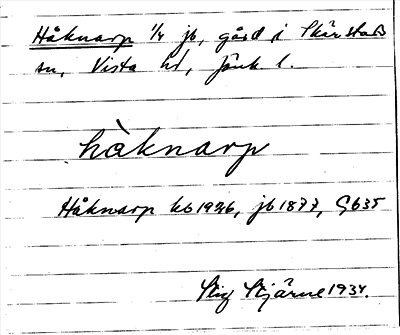 Håknarp 1/4 jb, gård i Skärstads
sn, Vista hd, Jönk l.
håknarp
Håknarp kb 1926, jb 1877, G635
Stig Stjärne 1934.